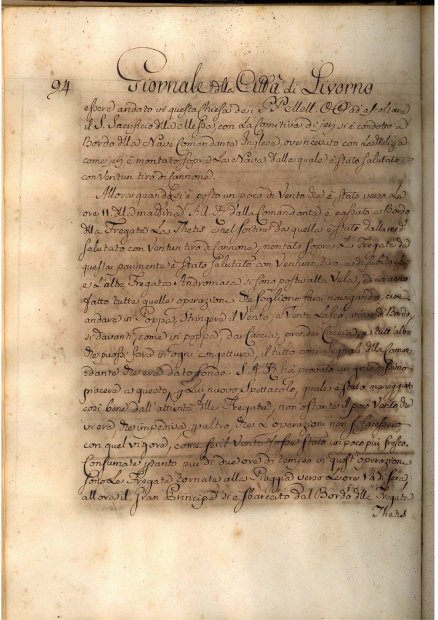 94 Giornale della Città di Livorno
essere andato in questa Chiesa dei PP. a ascoltare
il S. Sacrificio della Messa, con la comitiva di jeri si è condotto a
Bordo della Nave Comandante Inglese, ove ricevuto con la
come jeri è montato sopra la Nave dalla quale è stato salutato
con Ventun tiro di Cannone.
Allora quando si è posto un poco di Vento che è stato verso le
ore 11 della mattina S. A. R. dalla Comandante è passata a Bordo
della Fregata La Thetis e nel sortire da quella è stato dalla med.
salutato con Ventun tiro di Cannone, montato sopra la Fregata da
questa parimente è stato salutato con Ventun tiro, e
e l'altra Fregata Andromaca si sono poste alla Vela, ed anno
fatto tutte quelle operazioni che sogliono farsi navigando, cioè
andare in Poppa, stringere il Vento, a Vento Largo, virar di Bordo
sì davanti, come in poppa, dar Caccia, prender Caccia, e tutt'altro
che possa farsi in ogni congettura, il tutto con i segnali della Coman-
dante che era dato fondo. S. A. R. ha provato un grandissimo
piacere a questo, p. Lui nuovo Spettacolo, quale è stato maneggiato
così bene dall'attività delle Fregate, non ostante il poco Vento che
vi era che impediva p. altro, che l'operazioni non si facessero
con quel vigore, come se il Vento fosse stato un poco più fresco.
Consumate p. tanto più di due ore di tempo in quest'operazione
sono le Fregate tornate alla Piaggia verso le ore 1/4 di sera
allora il Gran Principe si è sbarcato dal Bordo della Fregata
Thetis